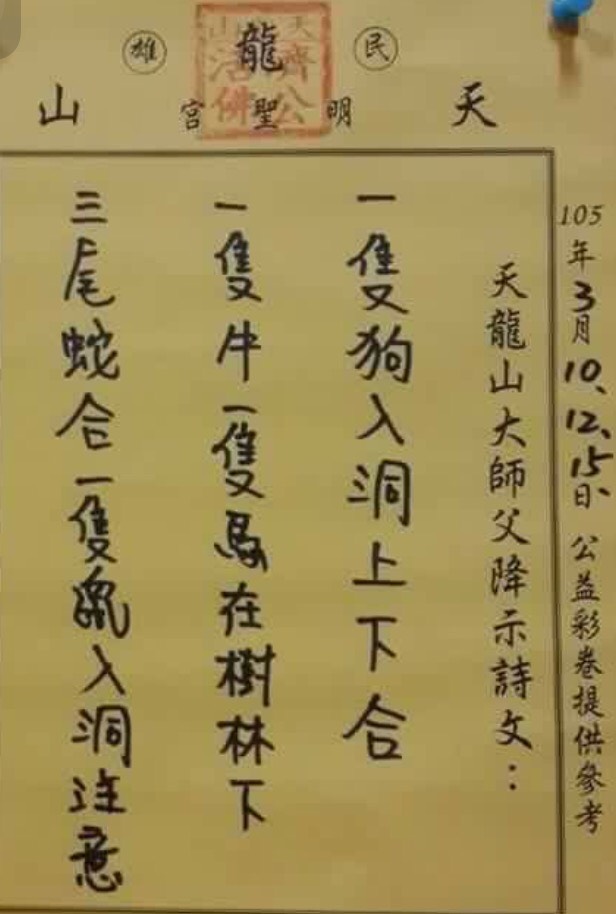 民雄
天龍山
明聖宮
濟公
活佛
105年3月10、12、15日、公益彩卷提供參考
天龍山大師父降示詩文：
一隻狗入洞上下合
一隻牛一隻馬在樹林下
三尾蛇合一隻入洞注意